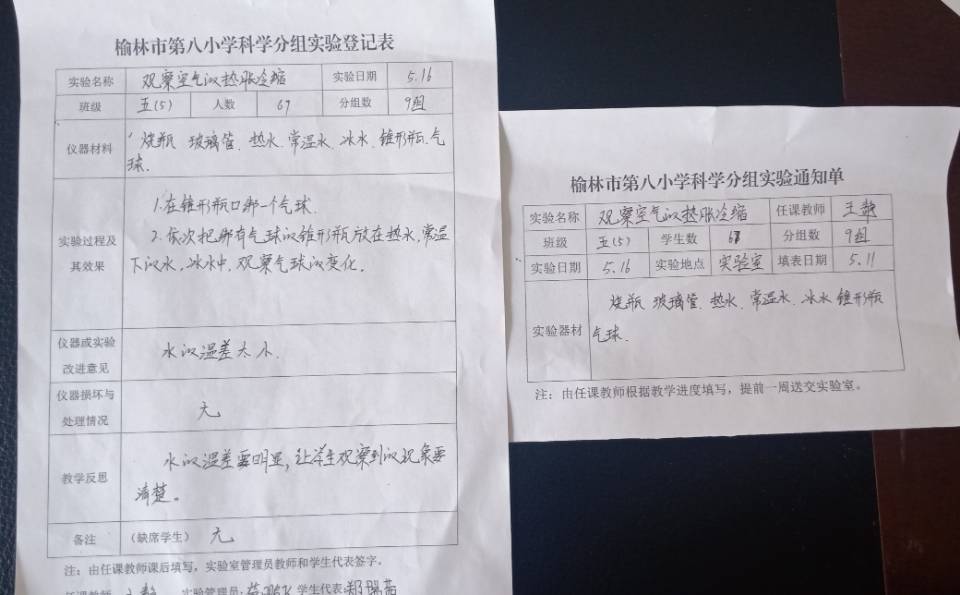 榆林市第八小学科学分组实验登记表
实验名称 观察空气的热胀冷缩 实验日期 5.16
班级 五(5) 人数 67 分组数 9组
仪器材料 烧瓶 玻璃管、热水、常温水、冰水、锥形瓶、气
球.
实验过程及其效果
1.在锥形瓶口绑一个气球.
2.依次把绑有气球的锥形瓶放在热水,常温
下的水,冰水中,观察气球的变化.
仪器或实验改进意见 水的温差太小.
仪器损坏与处理情况 无
教学反思 水的温差要明显,让学生观察到的现象要
清楚。
备注 (缺席学生) 无
注:由任课教师课后填写,实验室管理员教师和学生代表签字。
任课教师 实验管理员: 学生代表:郑瑞苗
榆林市第八小学科学分组实验通知单
实验名称 观察空气的热胀冷缩 任课教师 王静
班级 五(5) 学生数 分组数 9组
实验日期 5.16 实验地点 实验室 填表日期 5.11
实验器材 烧瓶 玻璃管、热水、常温水、冰水 锥形瓶
气球.
注:由任课教师根据教学进度填写,提前一周送交实验室。